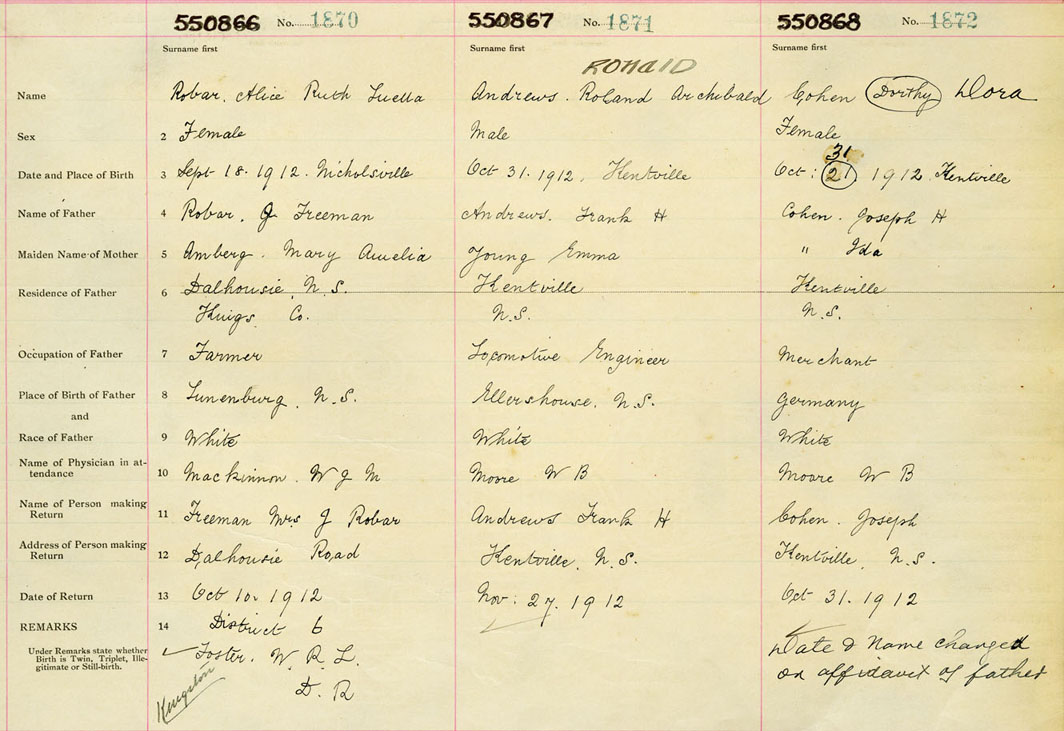 550866 No. 1870 550867 No. 1871 550868 No. 1872
Surname first Surname first Surname first
RONALD
Name Robar, Alice Ruth Luella Andrews. Roland Archibald Cohen Dorthy Dora
Sex 2 Female Male Female
31
Date and Place of Birth 3 Sept 18. 1912. Nicholsville Oct 31. 1912, Kentville Oct: 21. 1912. Kentville
Name of Father 4 Robar, J Freeman Andrews. Frank H Cohen. Joseph H
Maiden Name of Mother 5 Amberg. Mary Amelia Young Emma " Ida
Residence of Father 6 Dalhousie, N.S. Kentville Kentville
Kings Co. N.S. N.S.
Occupation of Father 7 Farmer Locomotive Engineer Merchant
Place of Birth of Father 8 Lunenburg, N.S. Ellershouse, N.S. Germany
and
Race of Father 9 White White White
Name of Physician in at-
tendance 10 Mackinnon. W J M Moore W B Moore W B
Name of Person making
Return 11 Freeman Mrs J Robar Andrews Frank H Cohen. Joseph
Address of Person making
Return 12 Dalhousie Road Kentville, N.S. Kentville, N.S.
Date of Return 13 Oct 10. 1912 Nov: 27. 1912 Oct 31. 1912
REMARKS 14 District 6
Under Remarks state whether
Birth is Twin, Triplet, Ille-
gitimate or Still-birth.
Foster. W. R. L. Date & Name changed
D. R on affidavit of father
Kingston